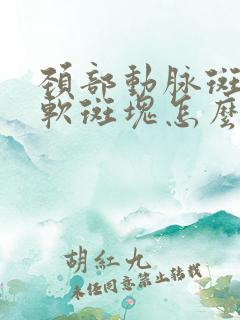 頚部動脉斑
軟斑塊怎麽
胡紅九
未經同意禁止转載